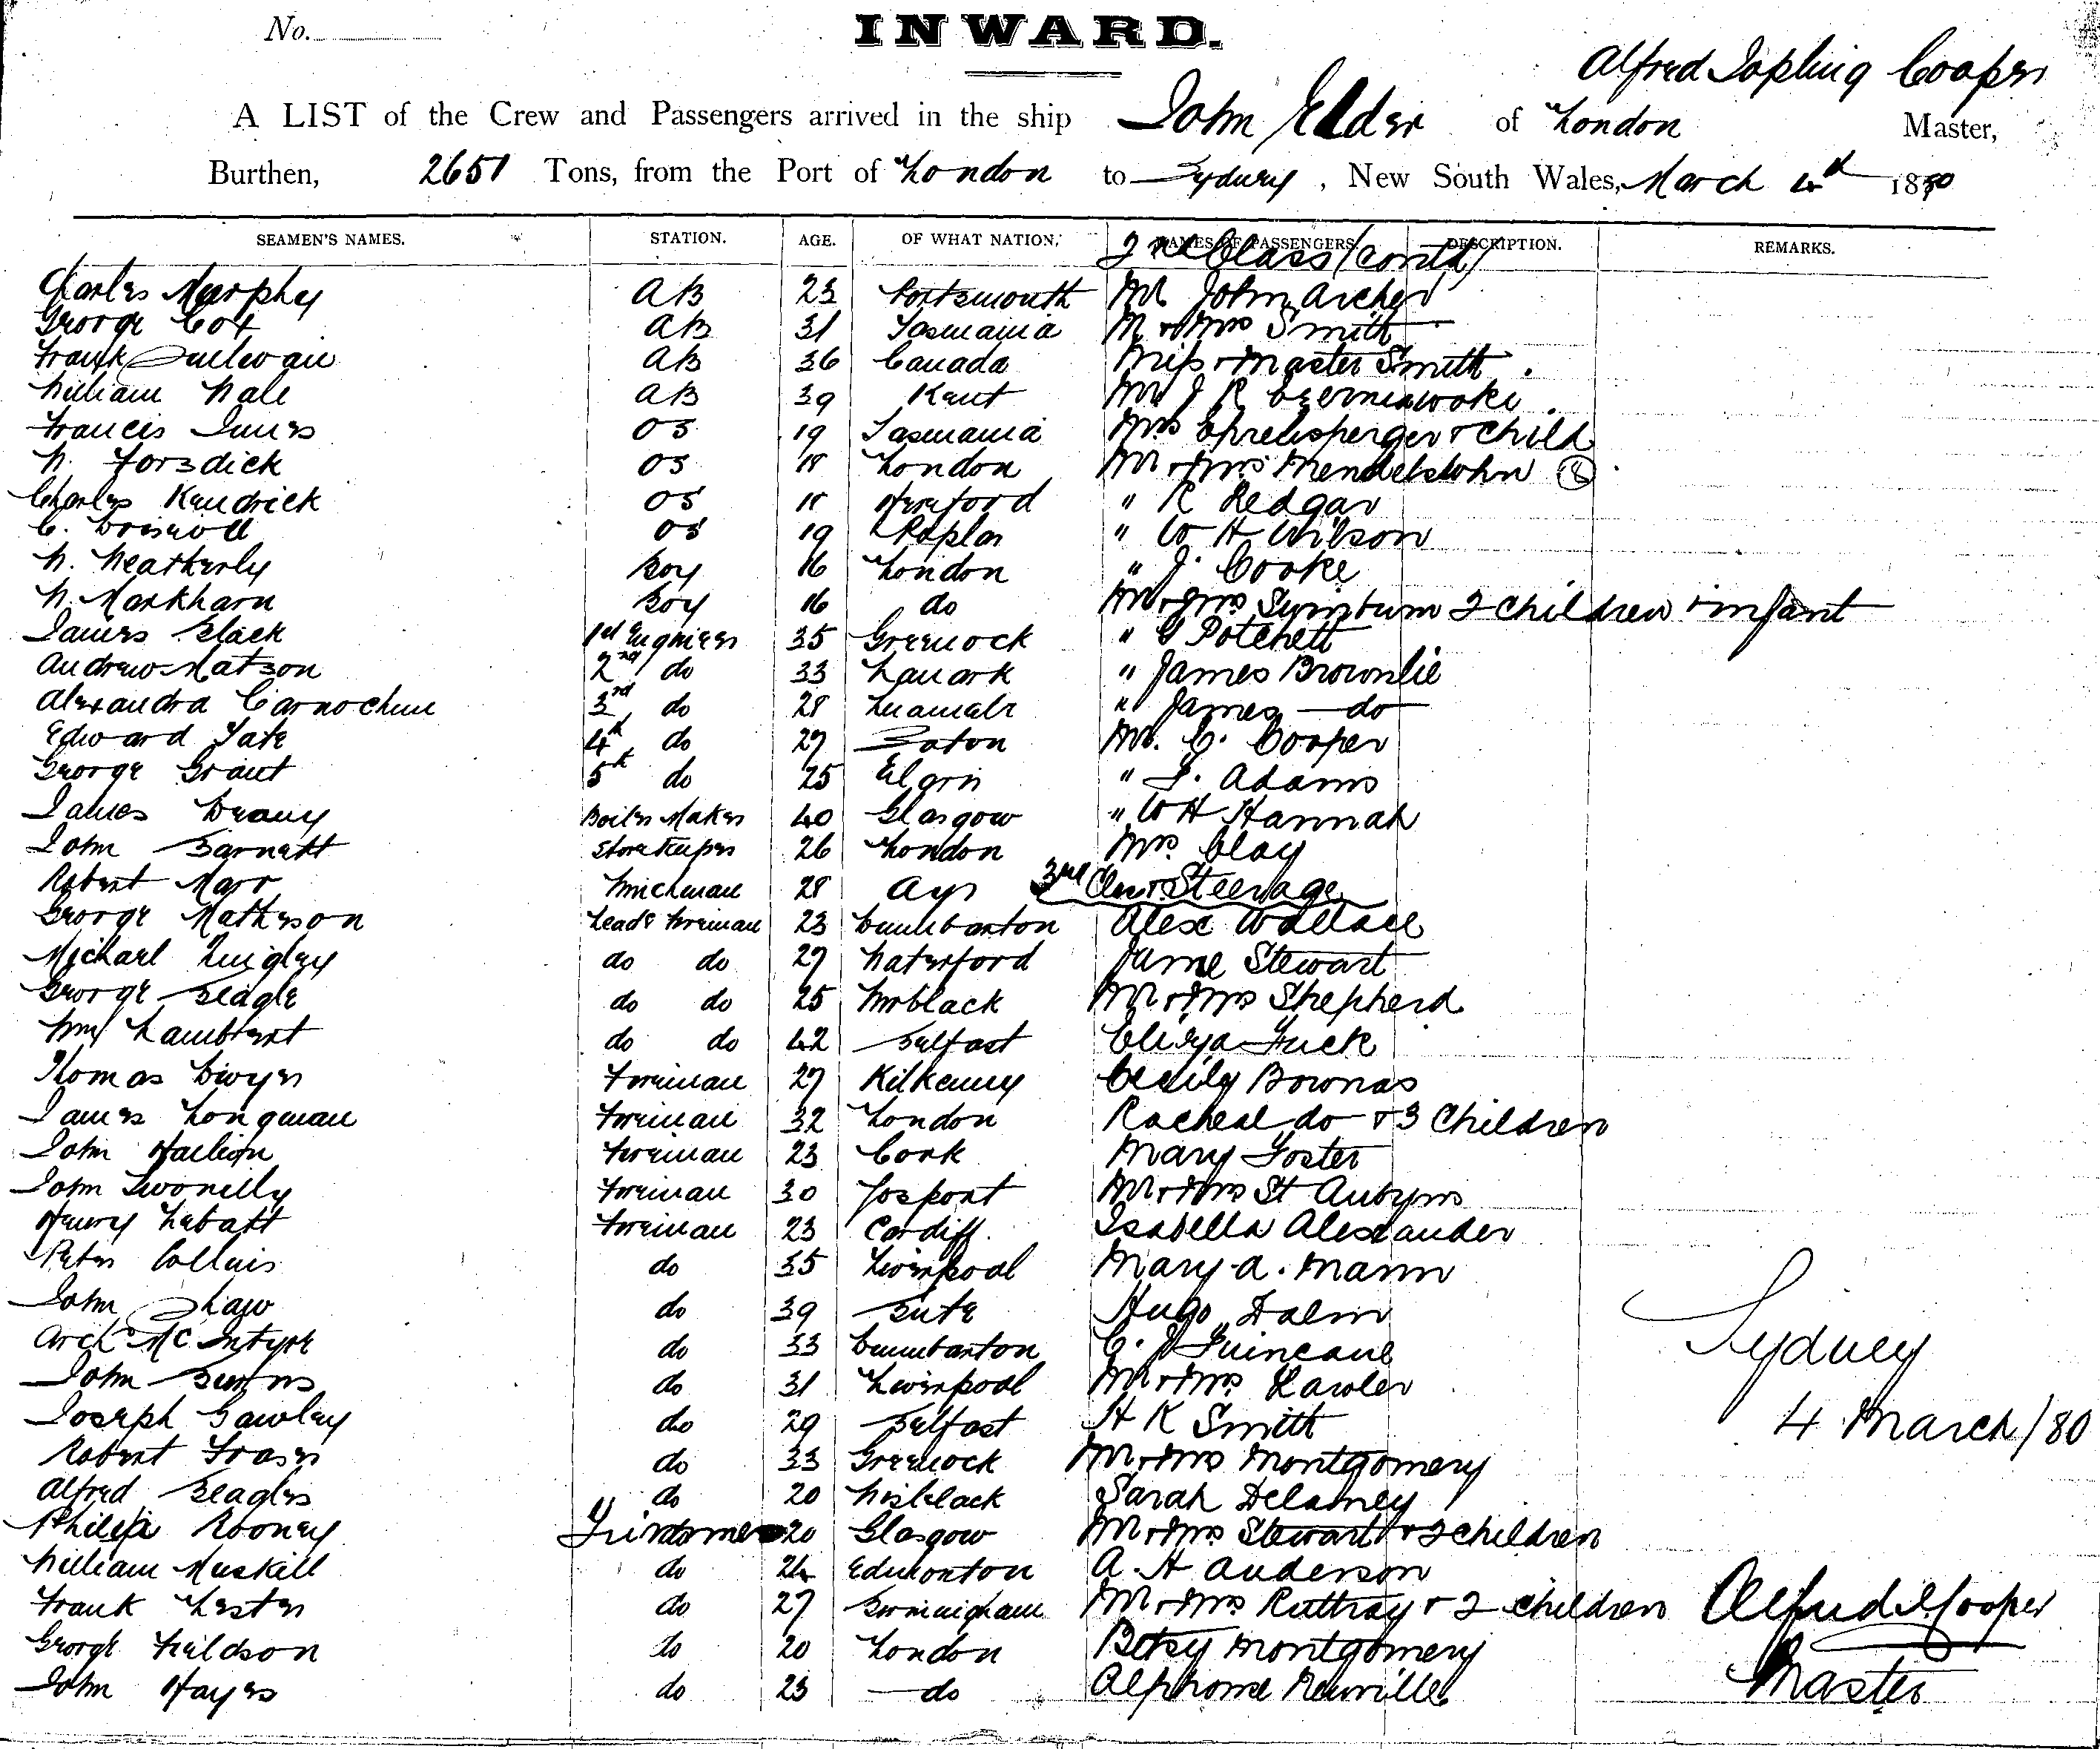 No.
INWARD.
Alfred Jopling Cooper
A LIST of the Crew and Passengers arrived in the ship John Elder of London Master,
Burthen, 2651 Tons, from the Port of London to Sydney, New South Wales, March 4th 1880
SEAMEN'S NAMES. STATION. AGE. OF WHAT NATION. NAMES OF PASSENGERS. DESCRIPTION. REMARKS.
2nd Class (contd)
Charles Murphy AB 23 Portsmouth Mr John Archer
George Cox AB 31 Tasmania Mr & Mrs Smith
Frank Sullivan AB 36 Canada Miss & Master Smith
William Hale AB 39 Kent Mr J R Czerniawoki
Francis Innes OS 19 Tasmania Mrs Ehrensperger & Child
W. Forsdick OS 18 London Mr & Mrs Mendelssohn
Charles Kendrick OS 18 Hereford " R Redgar
C. Driscoll OS 19 Poplar " W H Wilson
W. Weatherly Boy 16 London " J. Cooke
W. Markham Boy 16 do Mr & Mrs 2 Children & infant
James Black 1st Engineer 35 Greenock " G Potchett
Andrew Watson 2nd do 33 Lanark " James Brownlie
Alexandra Carnochan 3rd do 28 " James do
Edward Tate 4th do 27 Mr. C. Cooper
George Grant 5th do 25 Elgin " J. Adams
James Boiler Maker 40 Glasgow " W H Hannah
John Barnett Storekeeper 26 London Mrs. Clay
3rd Class & Steerage
Robert Marr Winchman 28 Ayr
George Matheson Leadg Fireman 23 Dumbarton Alex Wallace
Michael Quigley do do 27 Waterford Jame Stewart
George Beagle do do 25 Mr & Mrs Shepherd
Wm Lambert do do 42 Belfast Eliza Tuck
Thomas Dwyer Fireman 27 Kilkenny Cecily Bownas
James Longman Fireman 32 London Racheal do & 3 Children
John Fireman 23 Cork Mary Foster
John Fireman 30 Gosport Mr & Mrs St Aubyns
Henry Labatt Fireman 23 Cardiff. Isabella Alexander
Peter Collins do 35 Liverpool Mary A. Mann
John Shaw do 39 Bute Hugo Dalm
Archd McIntyre do 33 Dumbarton C. J Guincane
John Burns do 31 Liverpool Mr & Mrs Lawler
Joseph Gawley do 29 Belfast H K Smith
Robert Fraser do 33 Greenock Mr & Mrs Montgomery
Alfred Beagles do 20 Sarah Delamey
Philip Rooney Trimmer 20 Glasgow Mr & Mrs Stewart & 2 children
William Maskill do 24 Edmonton A. H Anderson
Frank Lester do 27 Birmingham Mr & Mrs Rattray & 2 children
George Fieldson do 20 London Betsy Montgomery
John Hayes do 23 do Alphonse Neuville
Sydney
4 March/80
Alfred J Cooper
Master